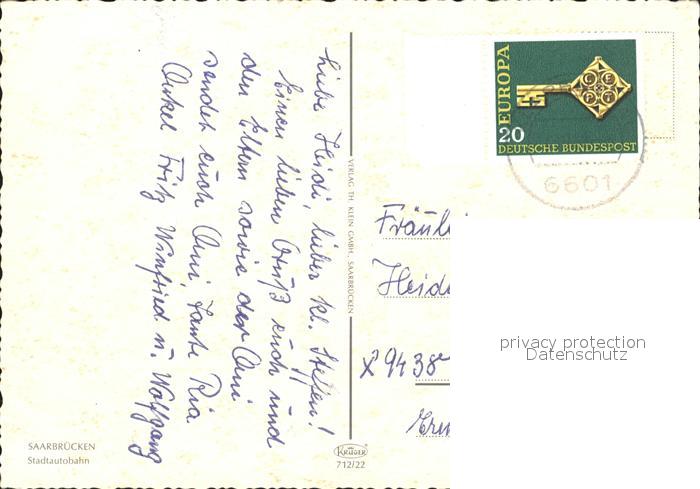 Liebe Heidi, lieber kl. Steffen!
Einen lieben Gruß euch und
den Eltern sowie der Omi
sendet euch Omi, Tante Ria
Onkel Fritz Winfried u. Wolfgang
VERLAG TH. KLEIN GMBH., SAARBRÜCKEN
EUROPA
CEPT
20
DEUTSCHE BUNDESPOST
6601
Fräulei
Heid
X 9438
privacy protection
Datenschutz
SAARBRÜCKEN
Stadtautobahn
KRÜGER
712/22